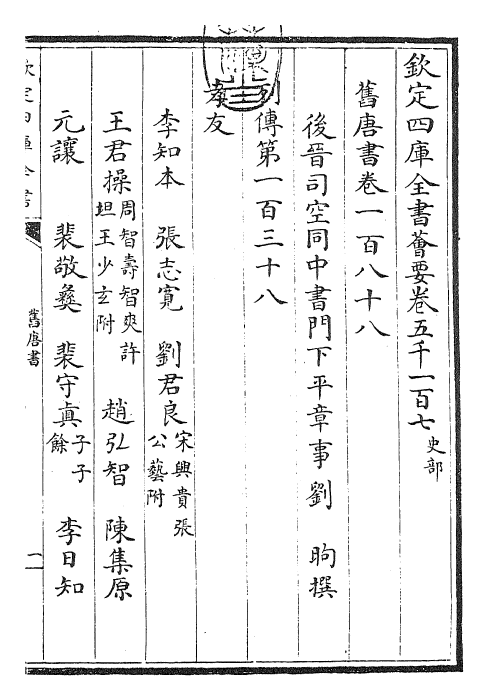 欽定四庫全書薈要卷五千一百七 史部
舊唐書卷一百八十八
後晉司空同中書門下平章事劉 昫撰
列傳第一百三十八
孝友
李知本 張志寬 劉君良 宋興貴 張公藝附
王君操 周智壽 智爽 許坦 王少玄附 趙弘智 陳集原
元讓 裴敬彝 裴守真 子子餘 李日知
欽定四庫全書
舊唐書
一